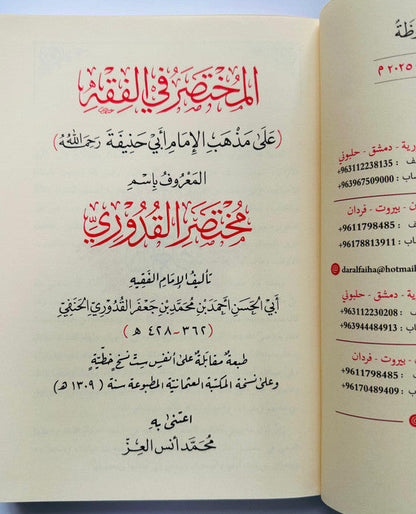 المُخْتَصَرُ فِي الفِقْهِ
(عَلَى مَذْهَبِ الإِمَامِ أَبِي حَنِيفَةَ رَحِمَهُ اللهُ)
المَعْرُوفُ بِاسْمِ
مُخْتَصَرِ القُدُورِيِّ
تأليفُ الإِمَامِ الفَقِيهِ
أَبِي الحَسَنِ أَحْمَدَ بْنِ مُحَمَّدِ بْنِ جَعْفَرٍ القُدُورِيِّ الحَنَفِيِّ
(٣٦٢ - ٤٢٨ هـ)
طبعةٌ مقابلةٌ على أنفسِ ستِّ نسخٍ خطيّةٍ
وعلى نسخة المكتبة العثمانية المطبوعة سنة (١٣٠٩ هـ)
اعتنى به
محمّد أنس العِزّ
٢٠٢٥ م
ورية - دمشق - حلبوني
+963112238135
+963967509000
ن - بيروت - فردان
+9611798485
+96178813911
daralfaiha@hotmail
ورية - دمشق - حلبوني
+963112230208
+963944484913
ن - بيروت - فردان
+9611798485
+96170489409